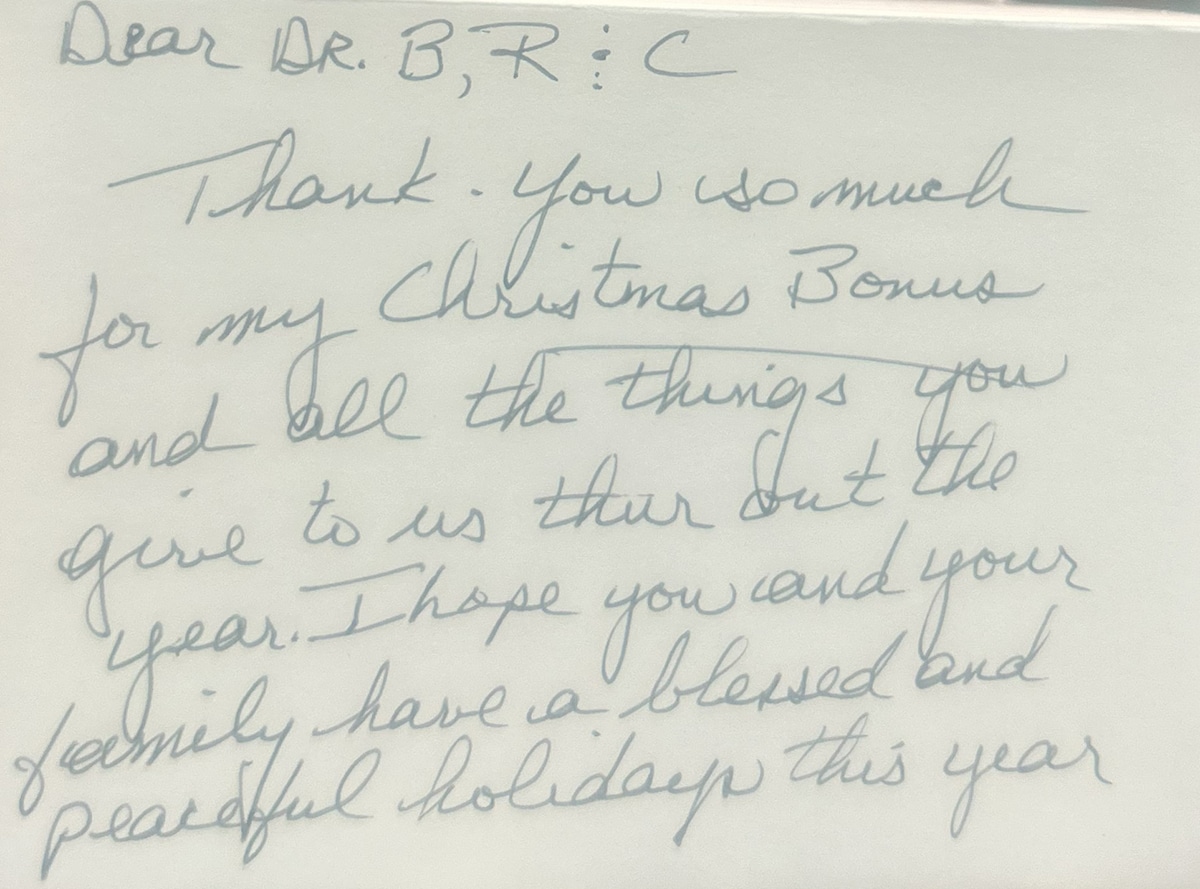 Dear DR. B, R & C
Thank. you so much
for my Christmas Bonus
and all the things you
give to us thur out the
year. I hope you and your
family have a blessed and
peaceful holidays this year